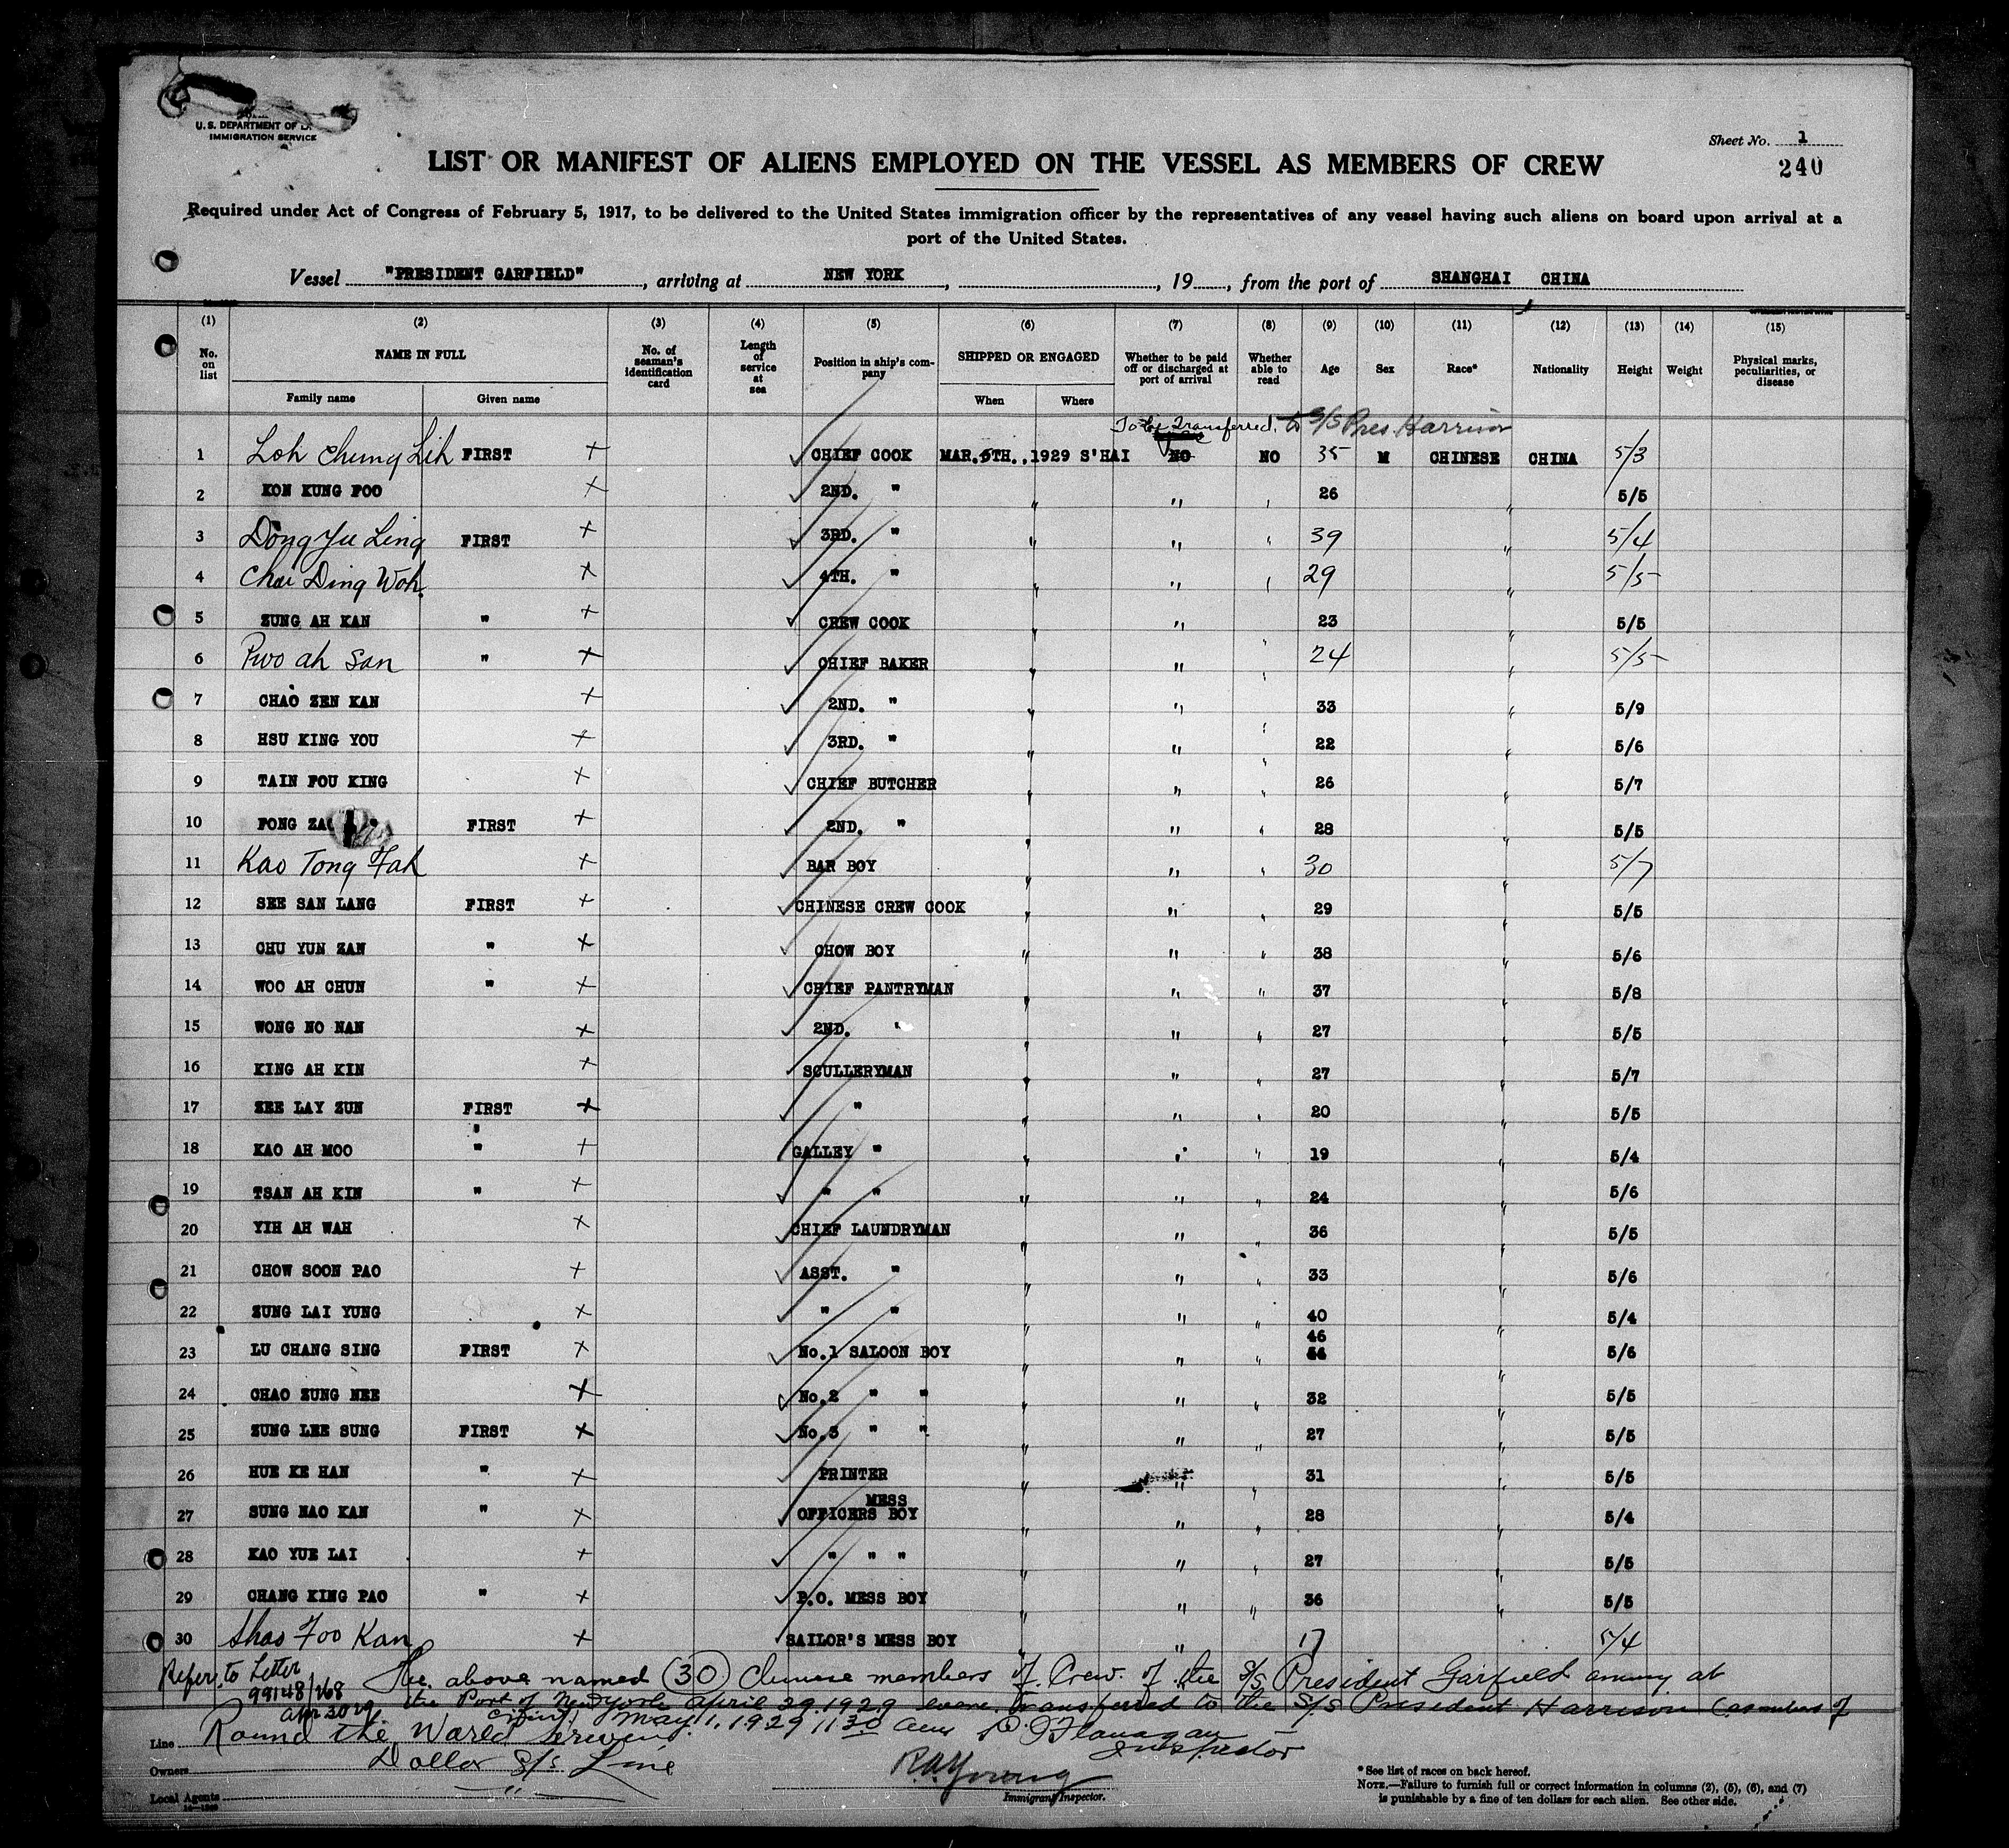 U.S. DEPARTMENT OF
IMMIGRATION SERVICE
Sheet No. 1
240
LIST OR MANIFEST OF ALIENS EMPLOYED ON THE VESSEL AS MEMBERS OF CREW
Required under Act of Congress of February 5, 1917, to be delivered to the United States immigration officer by the representatives of any vessel having such aliens on board upon arrival at a
port of the United States.
Vessel "PRESIDENT GARFIELD", arriving at NEW YORK, , 19 , from the port of SHANGHAI CHINA
(1) (2) (3) (4) (5) (6) (7) (8) (9) (10) (11) (12) (13) (14) (15)
No. on list NAME IN FULL Family name Given name No. of seaman's identification card Length of service at sea Position in ship's company SHIPPED OR ENGAGED When Where Whether to be paid off or discharged at port of arrival Whether able to read Age Sex Race* Nationality Height Weight Physical marks, peculiarities, or disease
To be Transferred to S/S Pres. Harrison
1 Loh Chung Lih FIRST + CHIEF COOK MAR. 5TH., 1929 S'HAI NO NO 35 M CHINESE CHINA 5/3
2 KON KUNG FOO + 2ND. " " " " 26 " 5/5
3 Dong Yu Ling FIRST + 3RD. " " " " 39 " 5/4
4 Chu Ding Woh + 4TH. " " " " 29 " 5/5
5 ZUNG AH KAN " + CREW COOK " " " 23 " 5/5
6 Pwo ah San " + CHIEF BAKER " " " 24 " 5/5
7 CHAO ZEN KAN + 2ND. " " " " 33 " 5/9
8 HSU KING YOU + 3RD. " " " " 22 " 5/6
9 TAIN FOU KING + CHIEF BUTCHER " " " 26 " 5/7
10 FONG FIRST + 2ND. " " " " 28 " 5/5
11 Kao Tong Fah + BAR BOY " " " 30 " 5/7
12 SEE SAN LANG FIRST + CHINESE CREW COOK " " " 29 " 5/5
13 CHU YUN ZAN " + CHOW BOY " " " 38 " 5/6
14 WOO AH CHUN " + CHIEF PANTRYMAN " " " 37 " 5/8
15 WONG NO NAN + 2ND. " " " " 27 " 5/5
16 KING AH KIN + SCULLERYMAN " " " 27 " 5/7
17 ZEE LAY ZUN FIRST + " " " " 20 " 5/5
18 KAO AH MOO " + GALLEY " " " " 19 " 5/4
19 TSAN AH KIN " + " " " " " 24 " 5/6
20 YIH AH WAH + CHIEF LAUNDRYMAN " " " 36 " 5/5
21 CHOW SOON PAO + ASST. " " " " 33 " 5/6
22 ZUNG LAI YUNG + " " " " " 40 " 5/4
23 LU CHANG SING FIRST + No.1 SALOON BOY " " " 46 " 5/6
24 CHAO ZUNG NEE + No.2 " " " " " 32 " 5/5
25 ZUNG LEE SUNG FIRST + No.3 " " " " " 27 " 5/5
26 HUE KE HAN " + PRINTER " " " 31 " 5/5
27 SUNG NAO KAN " + OFFICERS MESS BOY " " " 28 " 5/4
28 KAO YUE LAI + " " " " " " 27 " 5/5
29 CHANG KING PAO " + P.O. MESS BOY " " " 36 " 5/5
30 Shao Foo Kan + SAILOR'S MESS BOY " " " 17 5/4
Refer to Letter The above named (30) Chinese members of Crew of the S/S President Garfield at
99148/168 the Port of New York April 29. 1929 were transferred to the S/S President Harrison (as members of
Apr 30 29. May 1, 1929 11:30 am P. O'Flanagan
Line Round the World Service Inspector
Owners Dollar S/S Line
Local Agents "
R.A. Young
Immigrant Inspector.
* See list of races on back hereof.
NOTE.—Failure to furnish full or correct information in columns (2), (5), (6), and (7)
is punishable by a fine of ten dollars for each alien. See other side.